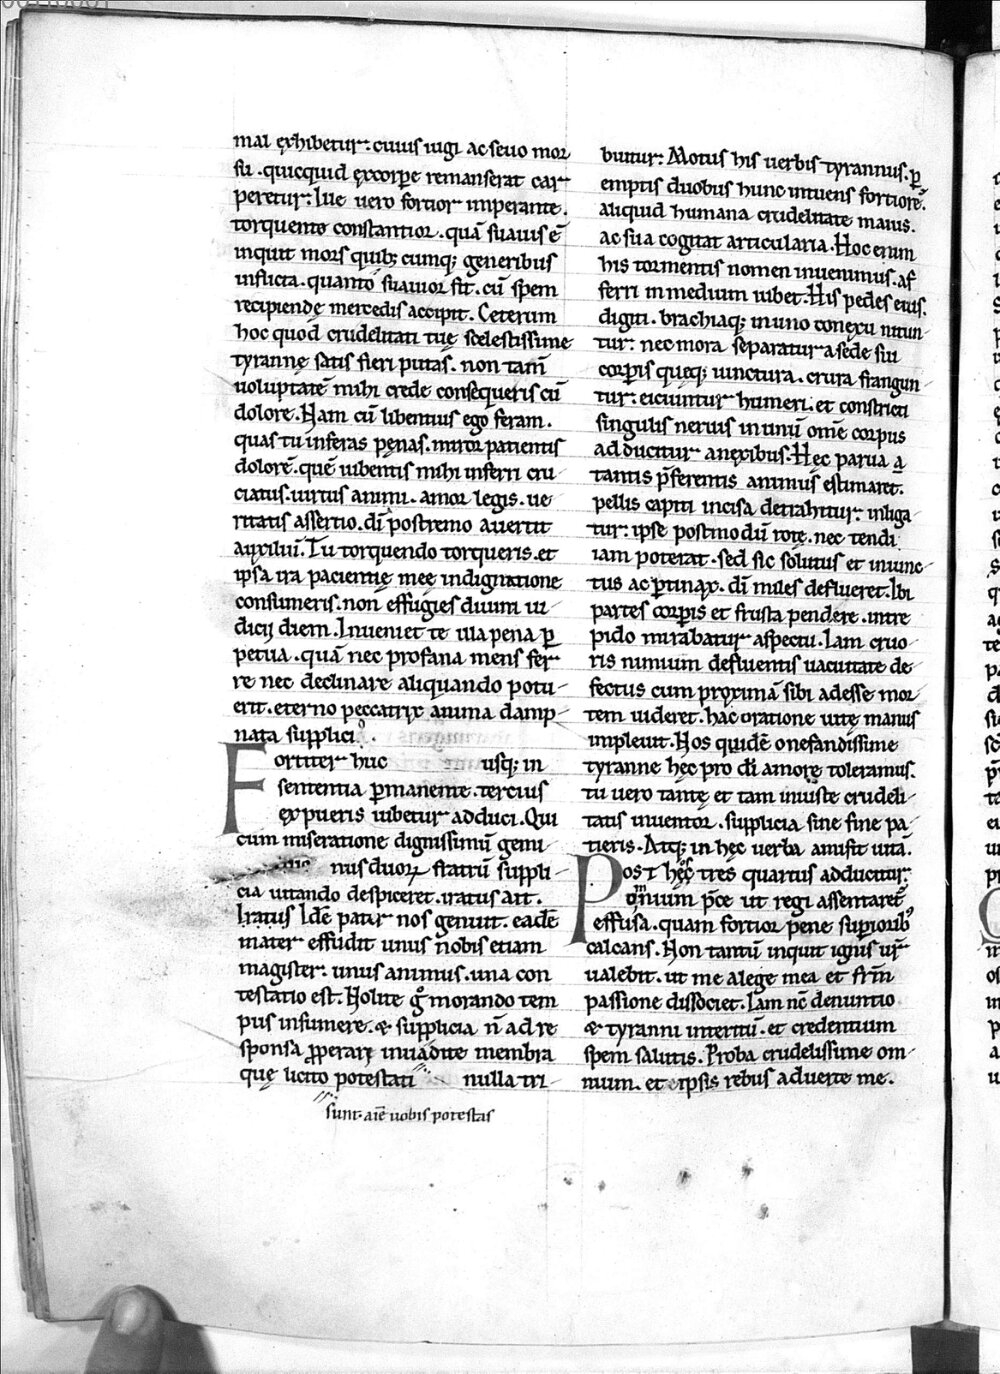 mal exhibetur: cuius iugi ac seuo mor
su. quicquid ex corpe remanserat car
peretur: Ille uero fortior imperante.
torquente constantior. quā suauis ē
inquit mors quibꝫ cumqꝫ generibus
inflicta. quanto suauior sit. cū spem
recipiende mercedis accipit. Ceterum
hoc quod crudelitati tuę scelestissime
tyrannę satis fieri putas. non tam
uoluptatē mihi crede consequeris cū
dolore. Nam cū libentius ego feram.
quas tu inferas pęnas. mitor patientis
dolorē. quē uibentis mihi inferri cru-
ciatus. uirtus animi. amor legis. ue-
ritatis assertio. di postremo auertit
auxiliū. Tu torquendo torqueris. et
ipsa ira pacientię meę indignatione
consumeris. non effugies diuini iu-
dicij diem. Inueniet te illa pena ꝑ
petua. quā nec profana mens fer-
re nec declinare aliquando potu-
erit. eterno peccatrix anima damp-
nata supplicio.
Fortiter huc usqꝫ in
sententia ꝑmanente. tercius
ex pueris iubetur adduci. Qui
cum miseratione dignissimū gemi-
nus duorꝝ fratrū suppli-
cia uitando despiceret. iratus ait.
Iratus Idē pater nos genuit. eadē
mater effudit unus nobis etiam
magister. unus animus. una con
testatio est. Nolite gͦ morando tem
pus insumere. & supplicia n̄ ad re
sponsa ꝓperari inuadite membra
que licito potestati nulla tri-
sunt. aīe uobis potestas
buitur: Motus his uerbis tyrannus. ꝑ
emptis duobus hunc intuens fortiorē.
aliquid humana crudelitate maius.
ac sua cogitat articularia. Hoc enim
his tormentis nomen inuenimus. af
ferri in medium iubet. His pedes eius.
digiti. brachiaqꝫ in uno conexu nitun-
tur: nec mora separatur a sede sui
corꝑis queqꝫ iunctura. crura frangun-
tur: eiciuntur humeri. et constricti
singulis neruis in unū omē corpus
adducitur anexibus. Hęc parua a
tantis p̄ferentis animus estimaret.
pellis capiti incisa detrahitur. inliga-
tur: ipse postmodū rotę. nec tendi
iam poterat. sed sic solutus et iniunc-
tus ac ꝑtinax. di miles deflueret. Ibi
partes corꝑis et frusta pendere. intre
pido mirabatur aspectu. Iam cruo-
ris nimium defluentis uacuitate de-
fectus cum proximā sibi adesse mor
tem uideret. hac oratione uitę manus
impleuit. Nos quidē o nefandissime
tyranne hęc pro di amore toleramus.
tu uero tantę et tam iniuste crudeli-
tatis inuentor. supplicia sine fine pa-
tieris. Atqꝫ in hęc uerba amisit uitā.
Post hos tres quartus adducitur:
omnium p̄ce ut regi assentaret
effusa. quam fortior pene suꝑioribꝰ
calcans. Non tantū inquit ignis ur̄
ualebit. ut me a lege mea et frm̄
passione dissociet. Iam nc̄ denuntio
& tyranni interitū. et credentium
spem salutis. Proba crudelissime om-
nium. et ipsis rebus aduerte me.